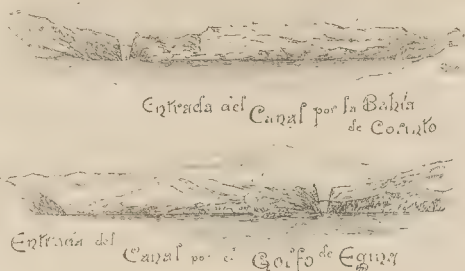 Entrada del Canal por la Bahía
de Corinto
Entrada del Canal por el Golfo de Egina